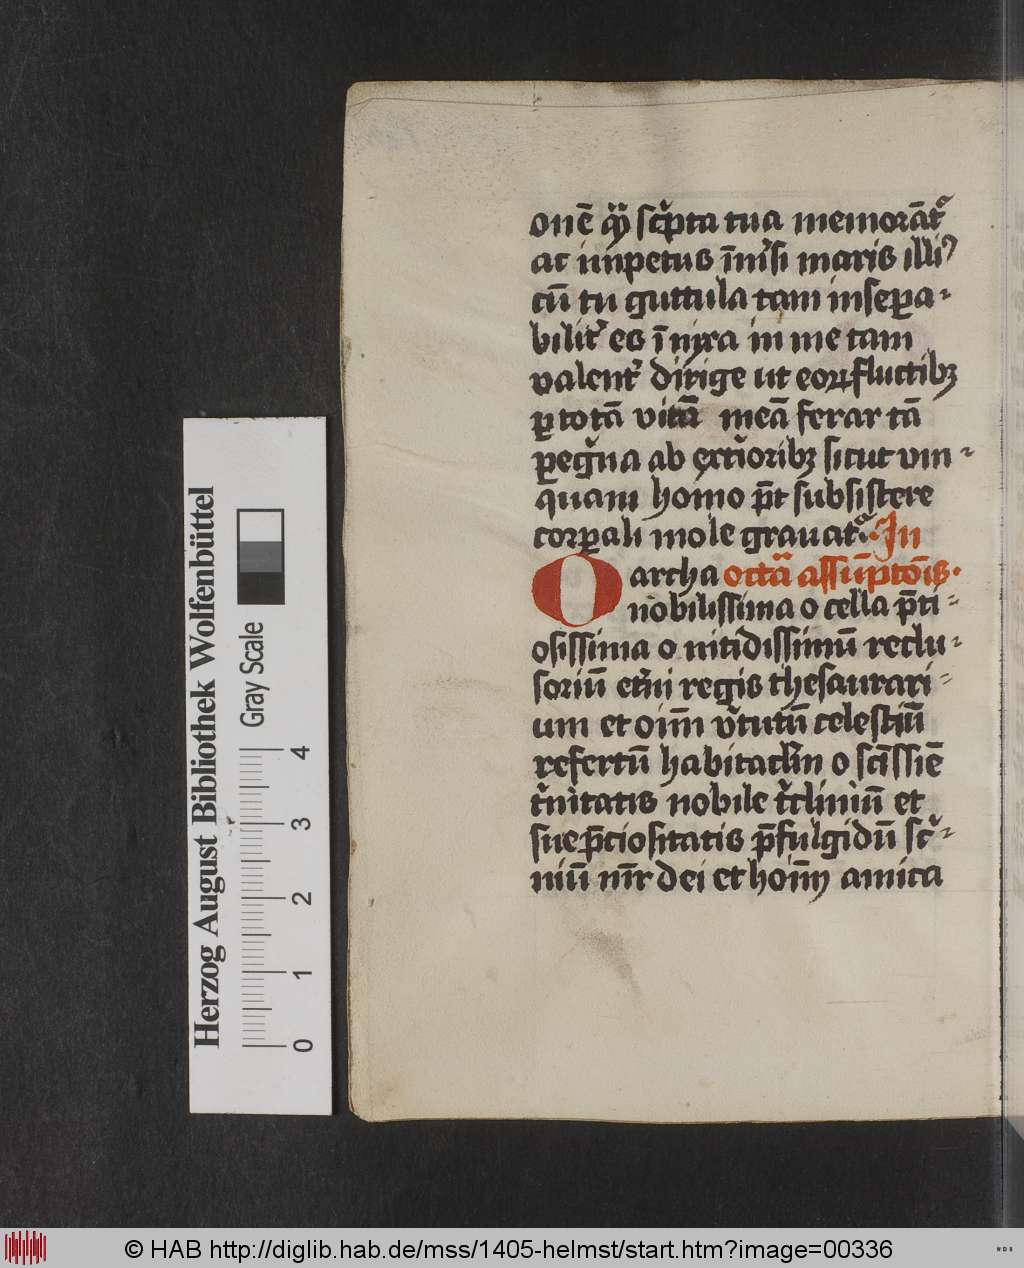 onē qͥꝫ sc̾pta tua memorāt᷑
ac impetus īm̄si maris illiꝰ
cū tu guttula tam insepa-
bilit᷑ es īnixa in me tam
valent᷑ dirige ut eoꝝ fluctibꝫ
ꝑ totā vitā meā ferar tā
ꝑeg̾na ab ext᷑ioribꝫ sicut vm-
quam homo p̄t subsistere
corꝑali mole grauat᷑. In
O archa octā assūptōis.
nobilissima o cella p̄ti-
osissima o nitidissimū reclu-
soriū et᷑ni regis thesaurari-
um et oīm v᷑tutū celestiū
refertū habitac̄lm o sc̄issīe
t᷑nitatis nobile t᷑cliniū et
sue p̄ciositatis p̄fulgidū sc᷑-
niū mr̄ dei et hoīm amica
Herzog August Bibliothek Wolfenbüttel
Gray Scale
0 1 2 3 4
© HAB http://diglib.hab.de/mss/1405-helmst/start.htm?image=00336